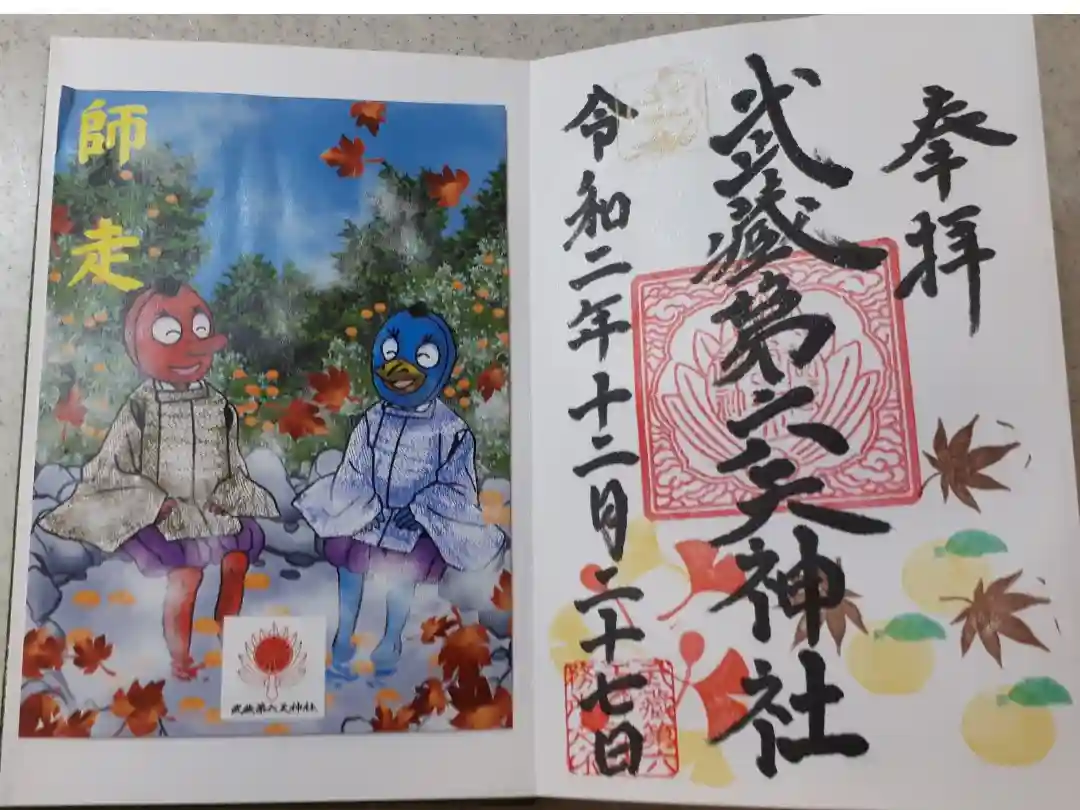 奉拝
武蔵第六天神社
令和二年十二月二十七日
師走
武蔵第六天神社